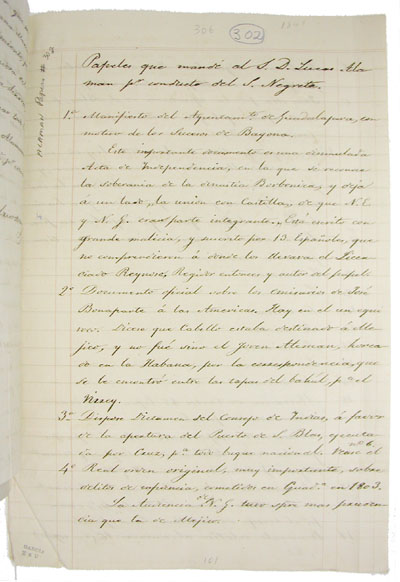 306
302
ALAMAN Papers # 302
Papeles que mandé al S. D. Lucas Ala
man pr. conducto del S. Negrete.
1º Manifiesto del Ayuntamto. de Guadalajara, con
motivo de los Sucesos de Bayona.
Este importante documento es una disimulada
Acta de Independencia, en la que se reconoce
la soberania de la dinastia Borbonica, y deja
á un lado la union con Castilla, de que N. E.
y N. G. eran parte integrante. Está escrito con
grande malicia, y suscrito por 13 Españoles, que
no comprendieron á donde los llevara el Licen
ciado Reynoso, Regidor entonces y autor del papel.
2º Documento oficial sobre los emisarios de José
Bonaparte á las Americas. Hay en el un equi
voco. Dicen que Cabello estaba destinado á Me
jico, y no fué sino el Joven Aleman, horca
do en la Habana, por la correspondencia, que
se le encontró entre las tapas del bahul, pa. el
Virrey.
3º Dictamen del Consejo de Indias, á favor
de la apertura del Puerto de S. Blas,
por Cruz, pa. todo buque nacional. Vease el
nº 6.
4º Real orden original, muy importante, sobre
delitos de infidencia, cometidos en Guada. en 1803.
La Audiencia de N. G. tuvo mas
que la de Mejico.